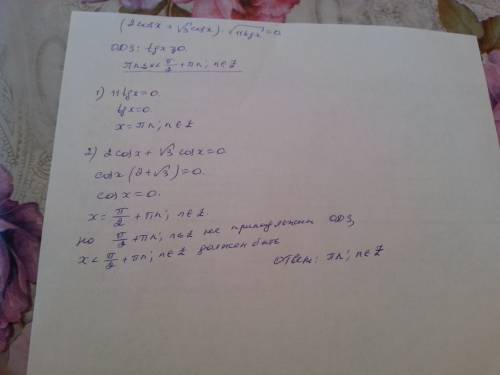 (2cosx + √3 cosx) · √11tgx = 0
ОДЗ: tgx ≥ 0.
πn ≤ x < π/2 + πn; n ∈ Z
1) 11tgx = 0.
tgx = 0.
x = πn; n ∈ Z
2) 2cosx + √3 cosx = 0.
cosx (2 + √3) = 0.
cosx = 0.
x = π/2 + πn; n ∈ Z.
но π/2 + πn; n ∈ Z не принадлежит ОДЗ,
x < π/2 + πn; n ∈ Z должен быть
Ответ: πn; n ∈ Z